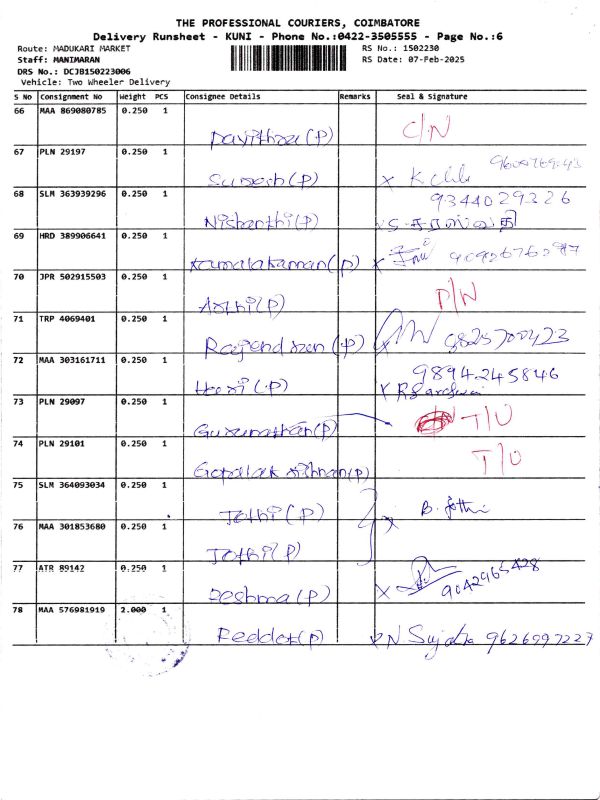 THE PROFESSIONAL COURIERS, COIMBATORE
Delivery Runsheet - KUNI - Phone No.:0422-3505555 - Page No.:6
Route: MADUKARI MARKET RS No.: 1502230
Staff: MANIMARAN RS Date: 07-Feb-2025
DRS No.: DCJB150223006
Vehicle: Two Wheeler Delivery
S No Consignment No Weight PCS Consignee Details Remarks Seal & Signature
66 MAA 869080785 0.250 1
Pavithra (P) C/N
67 PLN 29197 0.250 1
Suresh (P) x K
68 SLM 363939296 0.250 1 9344029326
Nishanthi (P) x S. சரஸ்வதி
69 HRD 389906641 0.250 1
Kamalakannan (P) x
70 JPR 502915503 0.250 1
Arthi (P) D/N
71 TRP 4069401 0.250 1
Rajendran (P)
72 MAA 303161711 0.250 1 9894245846
Hari (P) x
73 PLN 29097 0.250 1
Gurunathan (P) T/U
74 PLN 29101 0.250 1
Gopallakrishnan (P) T/U
75 SLM 364093034 0.250 1
Jothi (P) x B. Jothi
76 MAA 301853680 0.250 1
Jothi (P)
77 ATR 89142 0.250 1
Reshma (P) x 9042965428
78 MAA 576981919 2.000 1
(P) N Sujatha 9626997227